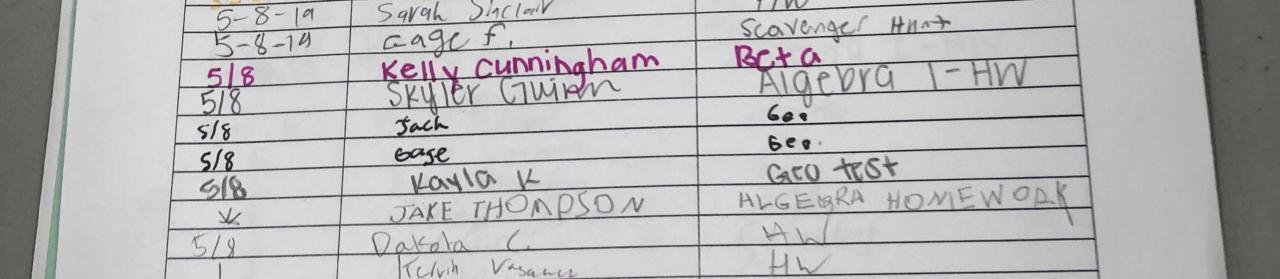 5-8-19 Sarah Sinclair HW
5-8-19 Gage F. Scavenger Hunt
5/8 Kelly Cunningham Beta
5/8 Skyler Guinn Algebra 1-HW
5/8 Jach Geo
5/8 Gage Geo.
5/8 Kayla K Geo test
JAKE THOMPSON ALGEBRA HOMEWORK
5/9 Dakota C. HW
HW